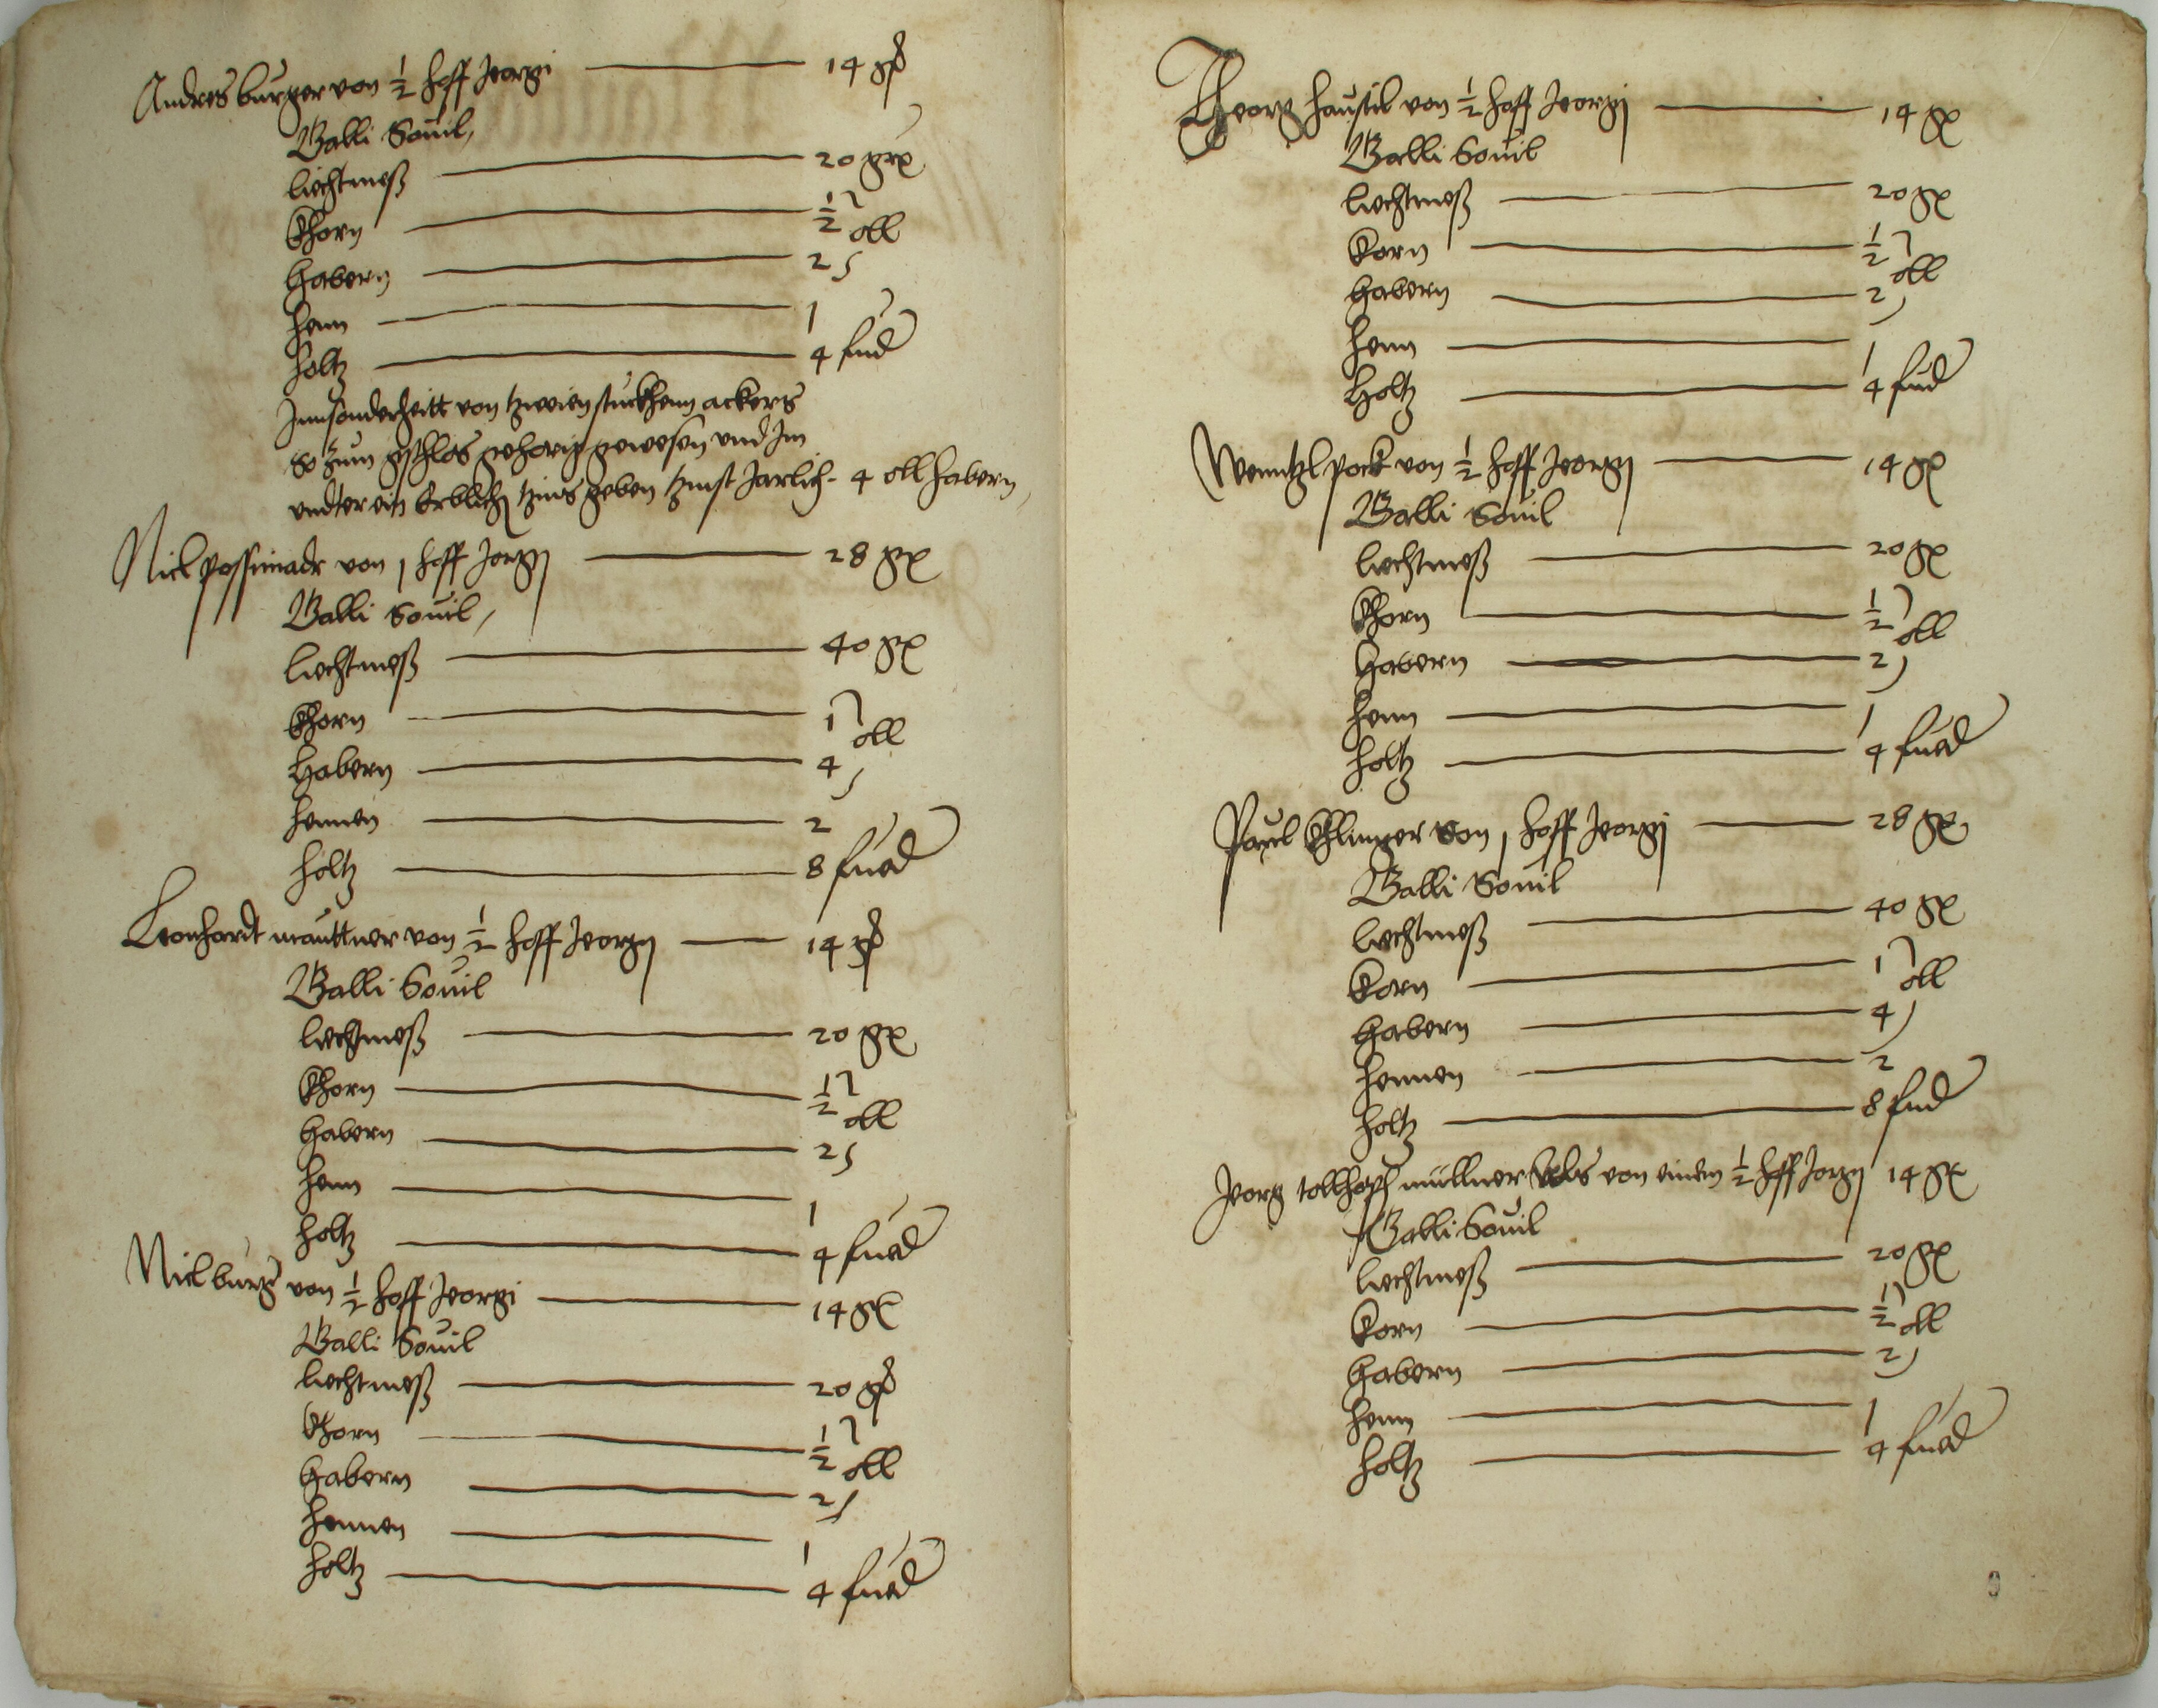 Andres burger von 1/2 hoff Jeorgi — 14 gß
Galli Souil,
liechtmeß — 20 grx
Khorn — 1/2
oll
habern — 2
henn — 1
holtz — 4 fud
Innsonderheitt von tzweien stuckhenn ackers
so zum gschlos gehorig gewesen vnd Im
vndter ein Erblich tzins geben tzinst Jarlich - 4 oll habern,
Nickl possimadr von 1 hoff Jorgj — 28 gx
Galli Souil,
liechtmeß — 40 gx
Khorn — 1
oll
habern — 4
hennen — 2
holtz — 8 fued
Leonhardt mauttner von 1/2 hoff Jeorgj — 14 gß
Galli Souil
liechtmeß — 20 gx
Khorn — 1/2
oll
habern — 2
henn — 1
holtz — 4 fued
Nicl burg von 1/2 hoff Jeorgi — 14 gx
Galli Souil
liechtmeß — 20 gß
Khorn — 1/2
oll
habern — 2
hennen — 1
holtz — 4 fued
Jheorg haustil von 1/2 hoff Jeorgj — 14 gx
Galli Souil
liechtmeß — 20 gx
Korn — 1/2
oll
habern — 2
henn — 1
Holtz — 4 fud
Wenntzl pock von 1/2 hoff Jeorgj — 14 gx
Galli Souil
liechtmeß — 20 gx
Khorn — 1/2
oll
habern — 2
henn — 1
holtz — 4 fued
Paul Khlinger von 1 hoff Jeorgj — 28 gx
Galli Souil
liechtmeß — 40 gx
Korn — 1
oll
habern — 4
hennen — 2
holtz — 8 fud
Jeorg müllner von einem 1/2 hoff Jorgj 14 gx
Galli Souil
liechtmeß — 20 gx
Korn — 1/2
oll
habern — 2
henn — 1
holtz — 4 fued
9